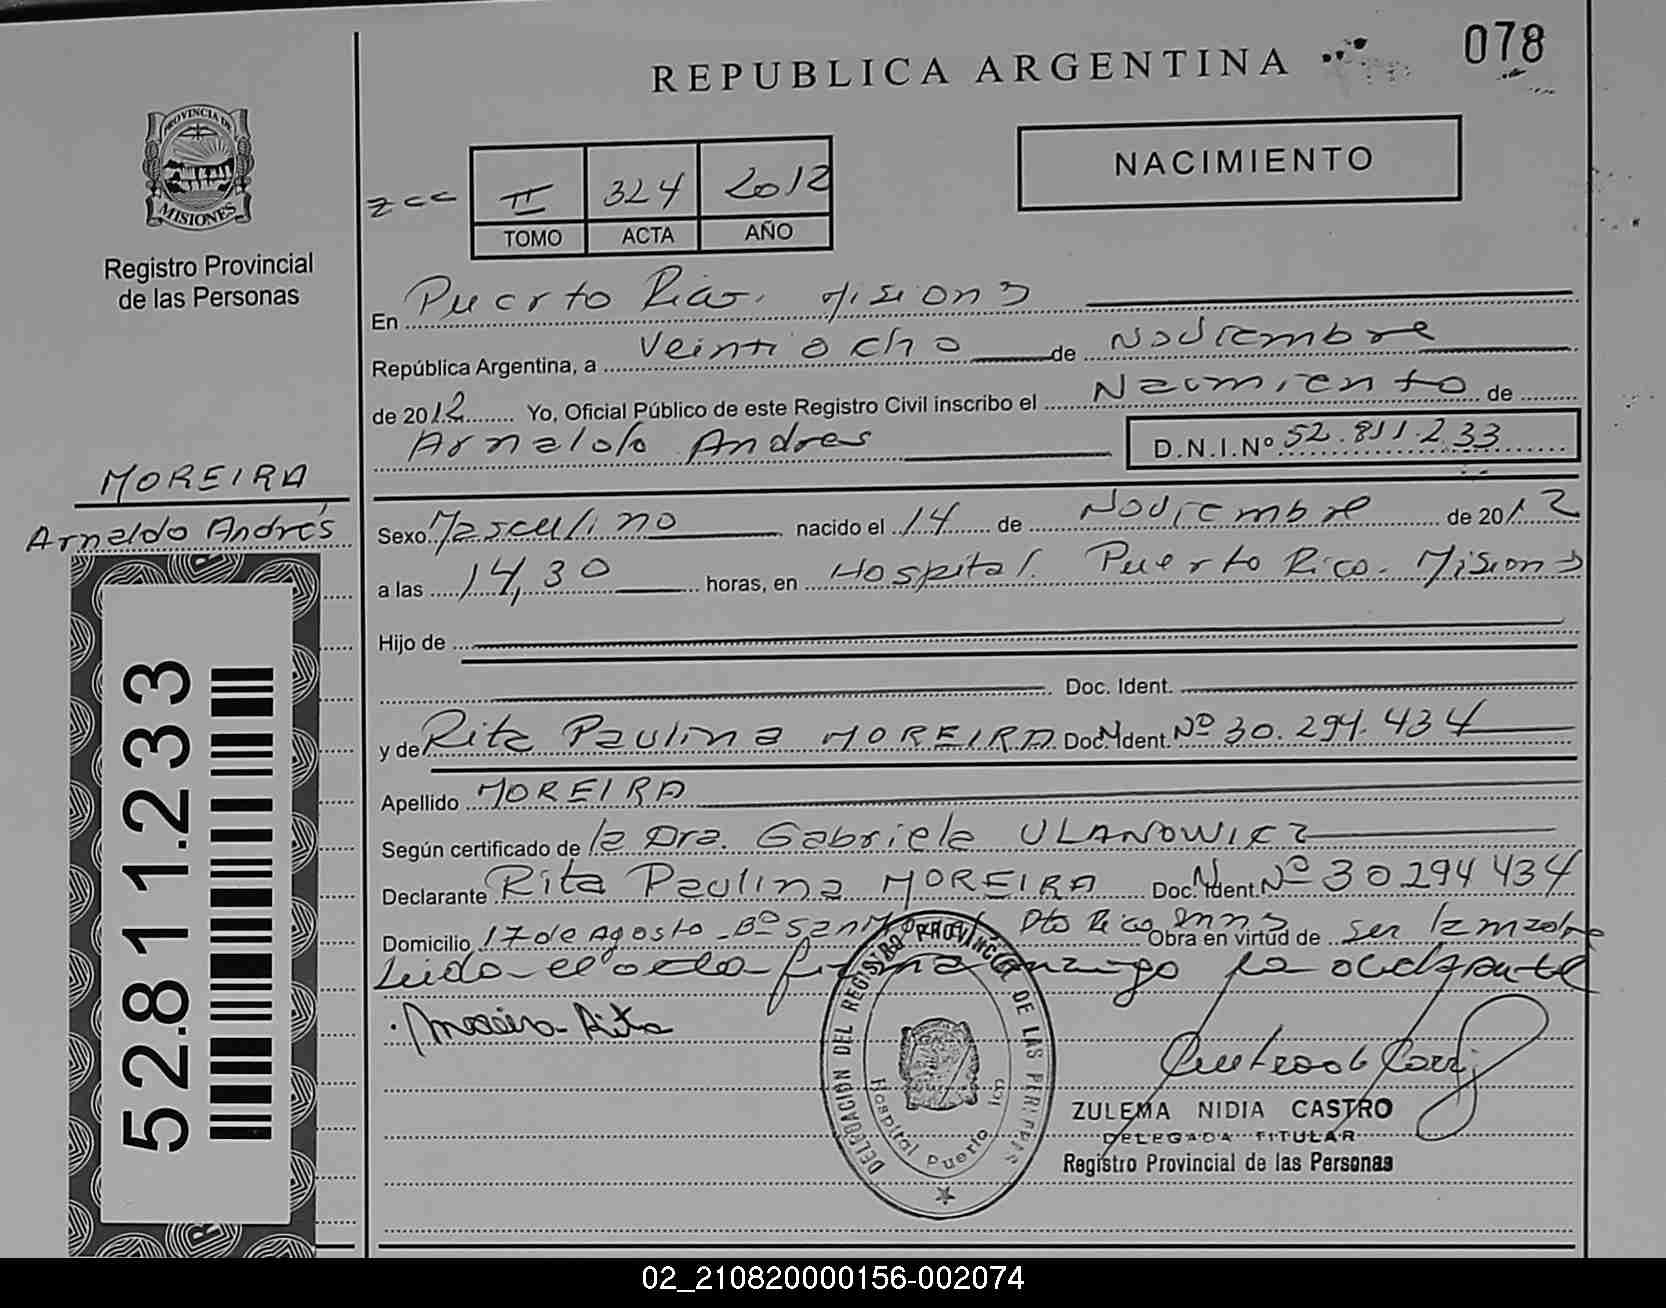 REPUBLICA ARGENTINA
078
PROVINCIA DE
MISIONES
Registro Provincial
de las Personas
NACIMIENTO
II 324 2012
TOMO ACTA AÑO
En Puerto Rico. Misiones
República Argentina, a Veintiocho de Noviembre
de 2012 Yo, Oficial Público de este Registro Civil inscribo el Nacimiento de
Arnaldo Andres D.N.I.Nº 52.811.233
MOREIRA
Arnaldo Andrés
Sexo Masculino nacido el 14 de Noviembre de 2012
a las 14,30 horas, en Hospital. Puerto Rico. Misiones
Hijo de
Doc. Ident.
y de Rita Paulina MOREIRA Doc. Ident. Nº 30.294.434
Apellido MOREIRA
Según certificado de la Dra. Gabriela ULANOWICZ
Declarante Rita Paulina MOREIRA Doc. Ident. Nº 30294434
Domicilio 17 de Agosto - Bº San Pto Rico Mnes Obra en virtud de ser la madre
Leido el acta firma la declarante
Moreira Rita
52.811.233
DELEGACION DEL REGISTRO PROVINCIAL DE LAS PERSONAS
Hospital Puerto Rico
ZULEMA NIDIA CASTRO
DELEGADA TITULAR
Registro Provincial de las Personas
02_210820000156-002074